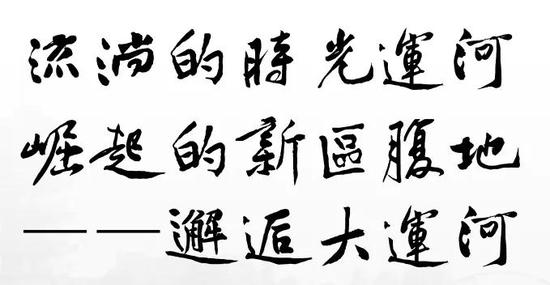 流淌的時光運河
崛起的新區腹地
——邂逅大運河